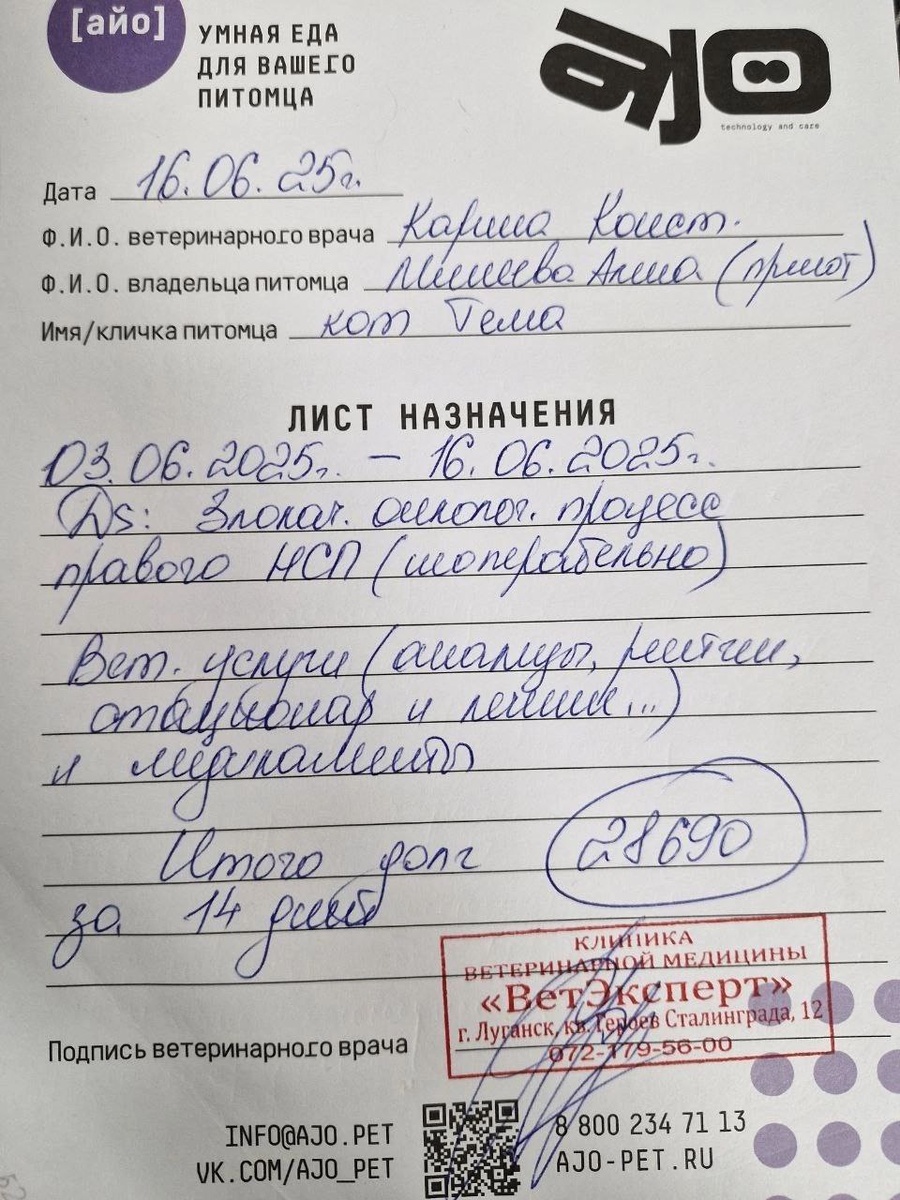 [айо]
УМНАЯ ЕДА
ДЛЯ ВАШЕГО
ПИТОМЦА
ajo
technology and care
Дата 16.06.25г.
Ф.И.О. ветеринарного врача Карина Конст.
Ф.И.О. владельца питомца Минеева Анна (приют)
Имя/кличка питомца кот Тема
ЛИСТ НАЗНАЧЕНИЯ
03.06.2025г. – 16.06.2025г.
Ds: Злокач. онколог. процесс
правого НСП (неоперабельно)
Вет. услуги (анализы, рентген,
стационар и лечение...)
и медикаменты
Итого долг 28690
за 14 дней
КЛИНИКА
ВЕТЕРИНАРНОЙ МЕДИЦИНЫ
«ВетЭксперт»
г. Луганск, кв. Героев Сталинграда, 12
072-179-56-00
Подпись ветеринарного врача
INFO@AJO.PET
VK.COM/AJO_PET
8 800 234 71 13
AJO-PET.RU